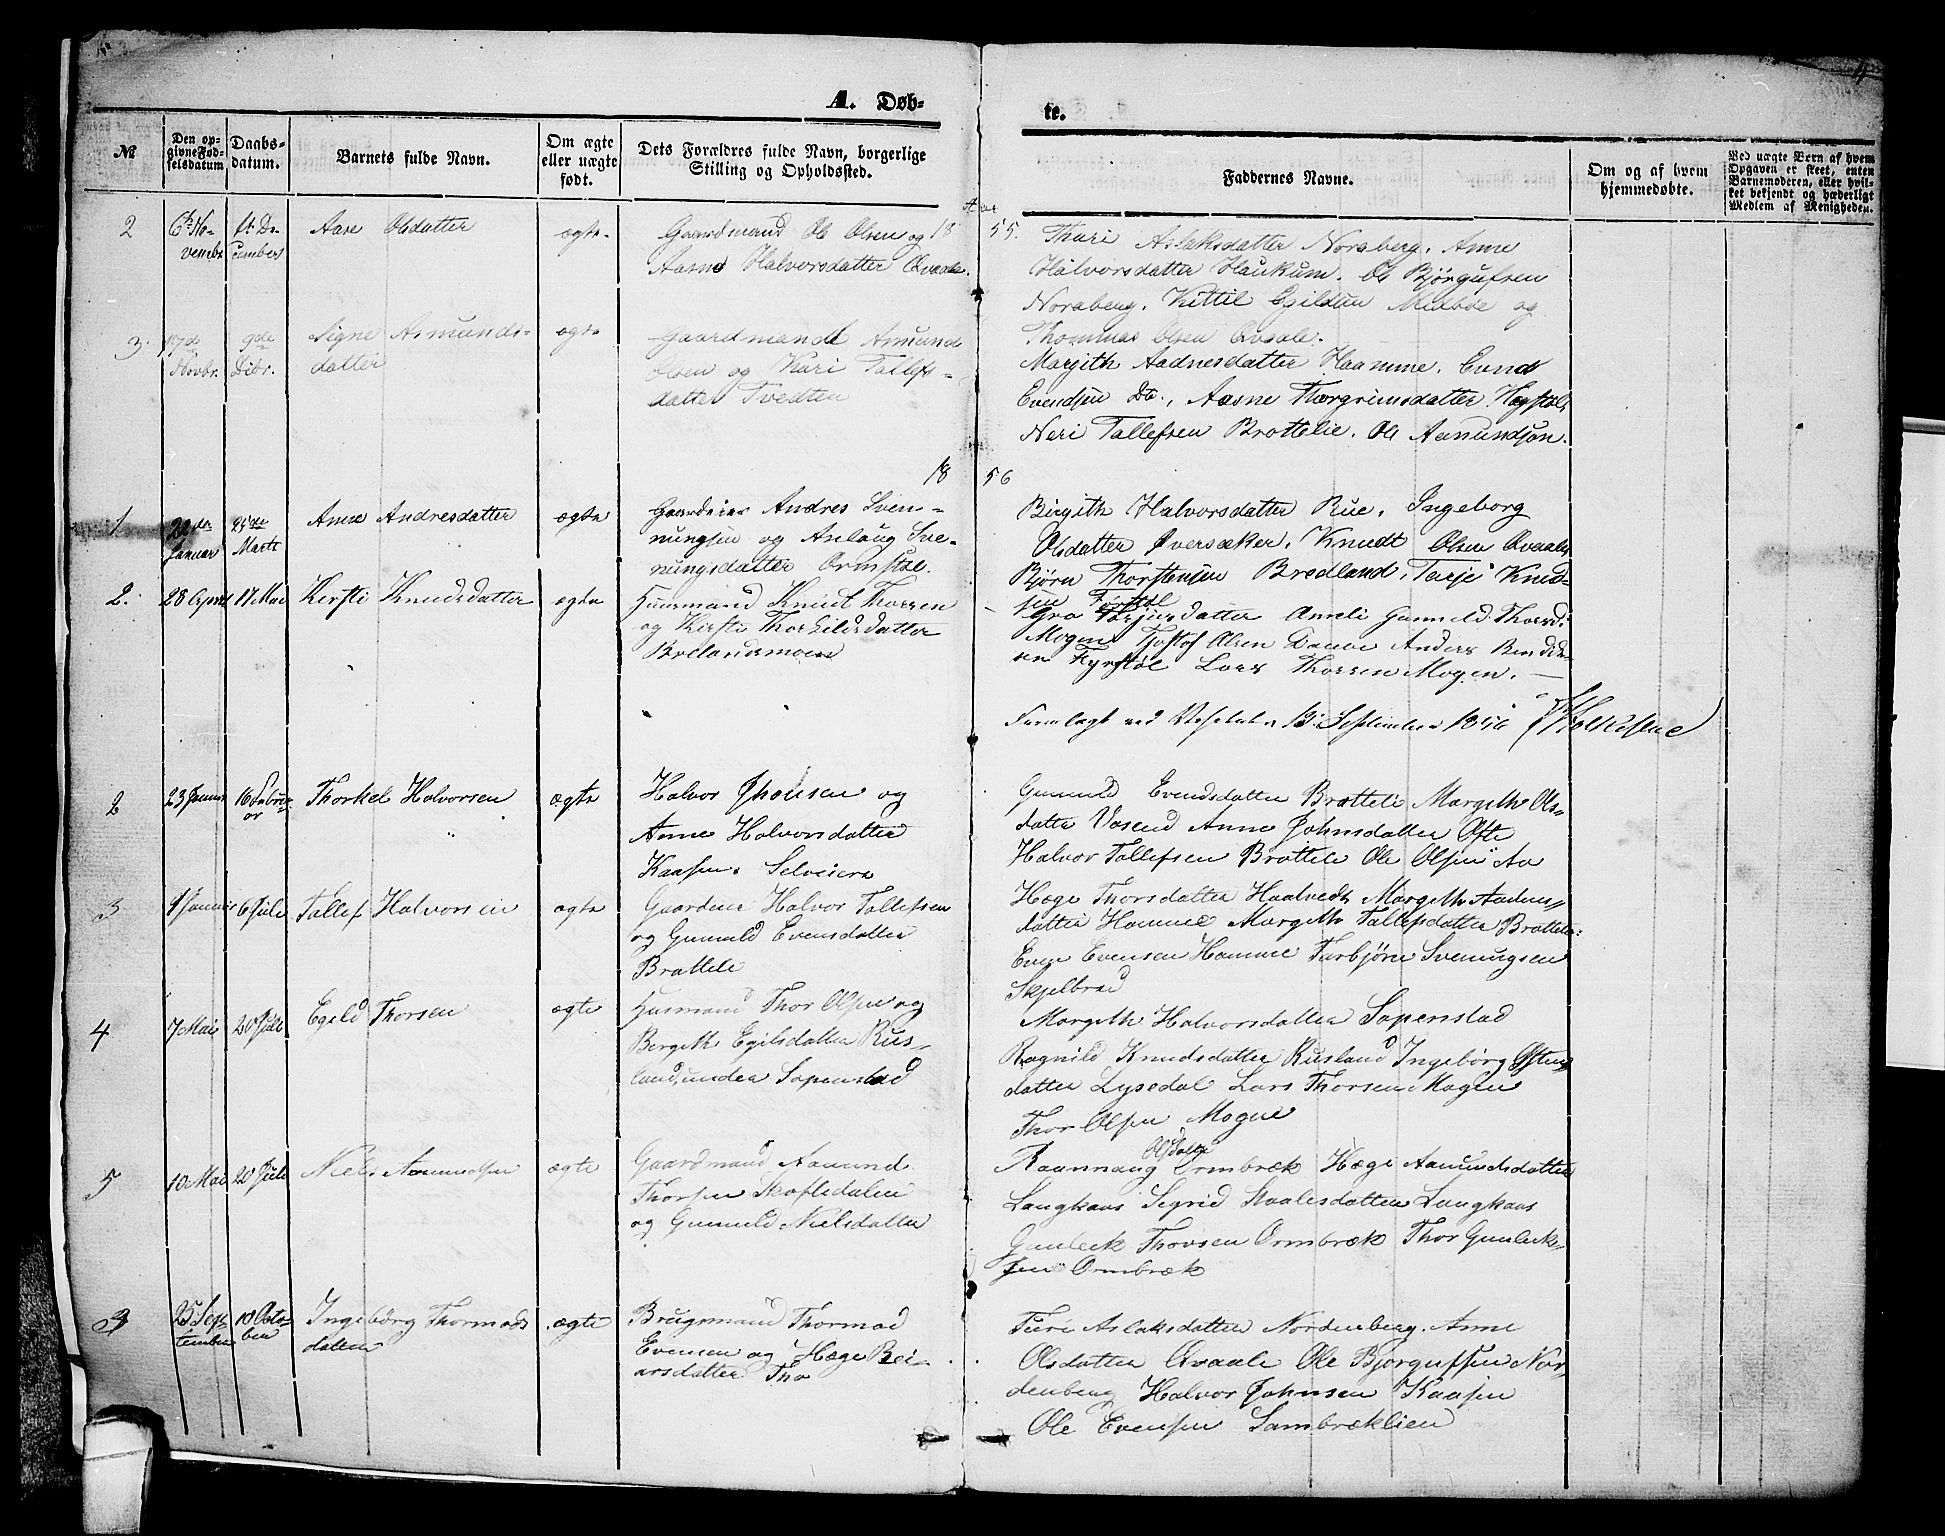 4
A. Døb-
te.
№
Den op-
givne Fød-
selsdatum
Daabs-
datum.
Barnets fulde Navn.
Om ægte
eller uægte
født.
Dets Forældres fulde Navn, borgerlige
Stilling og Opholdssted.
Faddernes Navne.
Om og af hvem
hjemmedøbte.
Ved uægte Børn af hvem
Opgaven er skeet, enten
Barnemoderen, eller hvil-
ket bekjendt og hæderligt
Medlem af Menigheden.
Aar
1855.
2
6te No-
vembr
cembers
Aase Olsdatter
ægte
Gaardmand Ole Olsen og
Aasne Halvorsdatter Qvaale.
Thuri Aslaksdatter Noraberg. Anne
Halvorsdatter Haukum. Ole Bjørgufsen
Noraberg. Kittil Egildsen Midbøe og
Thommas Olsen Qvaale.
3.
17de
Novbr.
9de
Dibr.
Signe Asmunds-
datter
ægte
Gaardmand Asmund
Olsen og Kari Tallefs-
datter Tvedten
Margith Aadnesdatter Haamme. Evend
Evendsen Do., Aasne Thorgrimsdatter
Neri Tallefsen Brottelie. Ole Asmundsøn.
1856
1
Januar
25de
Marts
Anne Andresdatter
ægte
Gaardeier Andres Sven-
nungsen og Aslaug Sve-
nungsdatter Ormstøl.
Birgith Halvorsdatter Rue. Ingeborg
Olsdatter Øversaker. Knudt Olsen Qvaale
Bjørn Thorstensen Bredland. Tarje Knud-
sen
2.
28 April
17 Mai
Kirsti Knudsdatter
ægte
Huusmand Knudt Thorsen
og Kirsti Thorkildsdatter
Breilandsmoen
Gro Tarjeisdatter Gunnild Thorsd:
Mogen Tjostof Olsen Anders
Lars Thorsen Mogen.
Fremlagt ved September 1856
2
23 Januar
16 Februar
Thorkel Halvorsen
ægte
Halvor Jhonsen og
Anne Halvorsdatter
Kaasen. Selveiere
Gunnild Evendsdatter Brotteli Margith Ols-
datter Vasend Anne Johnsdatter Ofte
Halvor Tallefsen Brotteli Ole Olsen Aa
3
1 Januar
6 Juli
Tallef Halvorsen
ægte
Gaardeier Halvor Tallefsen
og Gunnild Evensdatter
Brotteli
Hæge Thorsdatter Haatvedt Margith Aadnes-
datter Hamme Margith Tallefsdatter Brotteli.
Even Evensen Hamme Tarbjørn Svenungsen
Skjelbred
4
7 Mai
20 Juli
Egild Thorsen
ægte
Husmand Thor Olsen og
Bergith Egilsdatter Rus-
land, under Sopenstad
Margith Halvorsdatter Sopenstad
Ragnild Knudsdatter Rusland Ingebørg Østens-
datter Lysedal Lars Thorsen Mogen
Thor Olsen Mogne
5
10 Mai
20 Juli
Niels Aamundsen
ægte
Gaardmand Aamund
Thorsen Skoftedalen
og Gunnild Nielsdatter
Raannaug Olsdatter Ormbræk Hæge Aamundsdatter
Langkaas Sigrid Staalesdatter Langkaas
Gunleik Thovsen Ormbræk Thor Gunleik-
sen Ormbræk
3
25 Sep-
tember
10 Octo-
ber
Ingebørg Thormods-
datter
ægte
Brugsmand Thormod
Evensen og Hæge Rei-
arsdatter Tho
Turi Aslaksdatter Nordenberg. Anne
Olsdatter Qvaale Ole Bjørgufsen Nor-
denberg Halvor Johnsen Kaasen
Ole Evensen Sambræklien